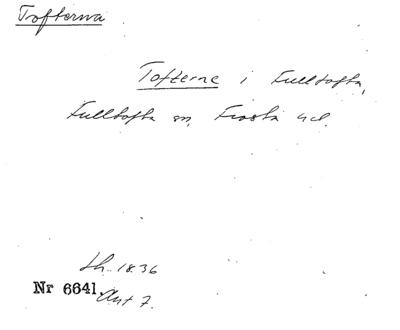 Tofterna
Tofterne i Fulltofta,
Fulltofta sn, Frosta hd.
Lh. 1836
Nr 6641. Akt 7.